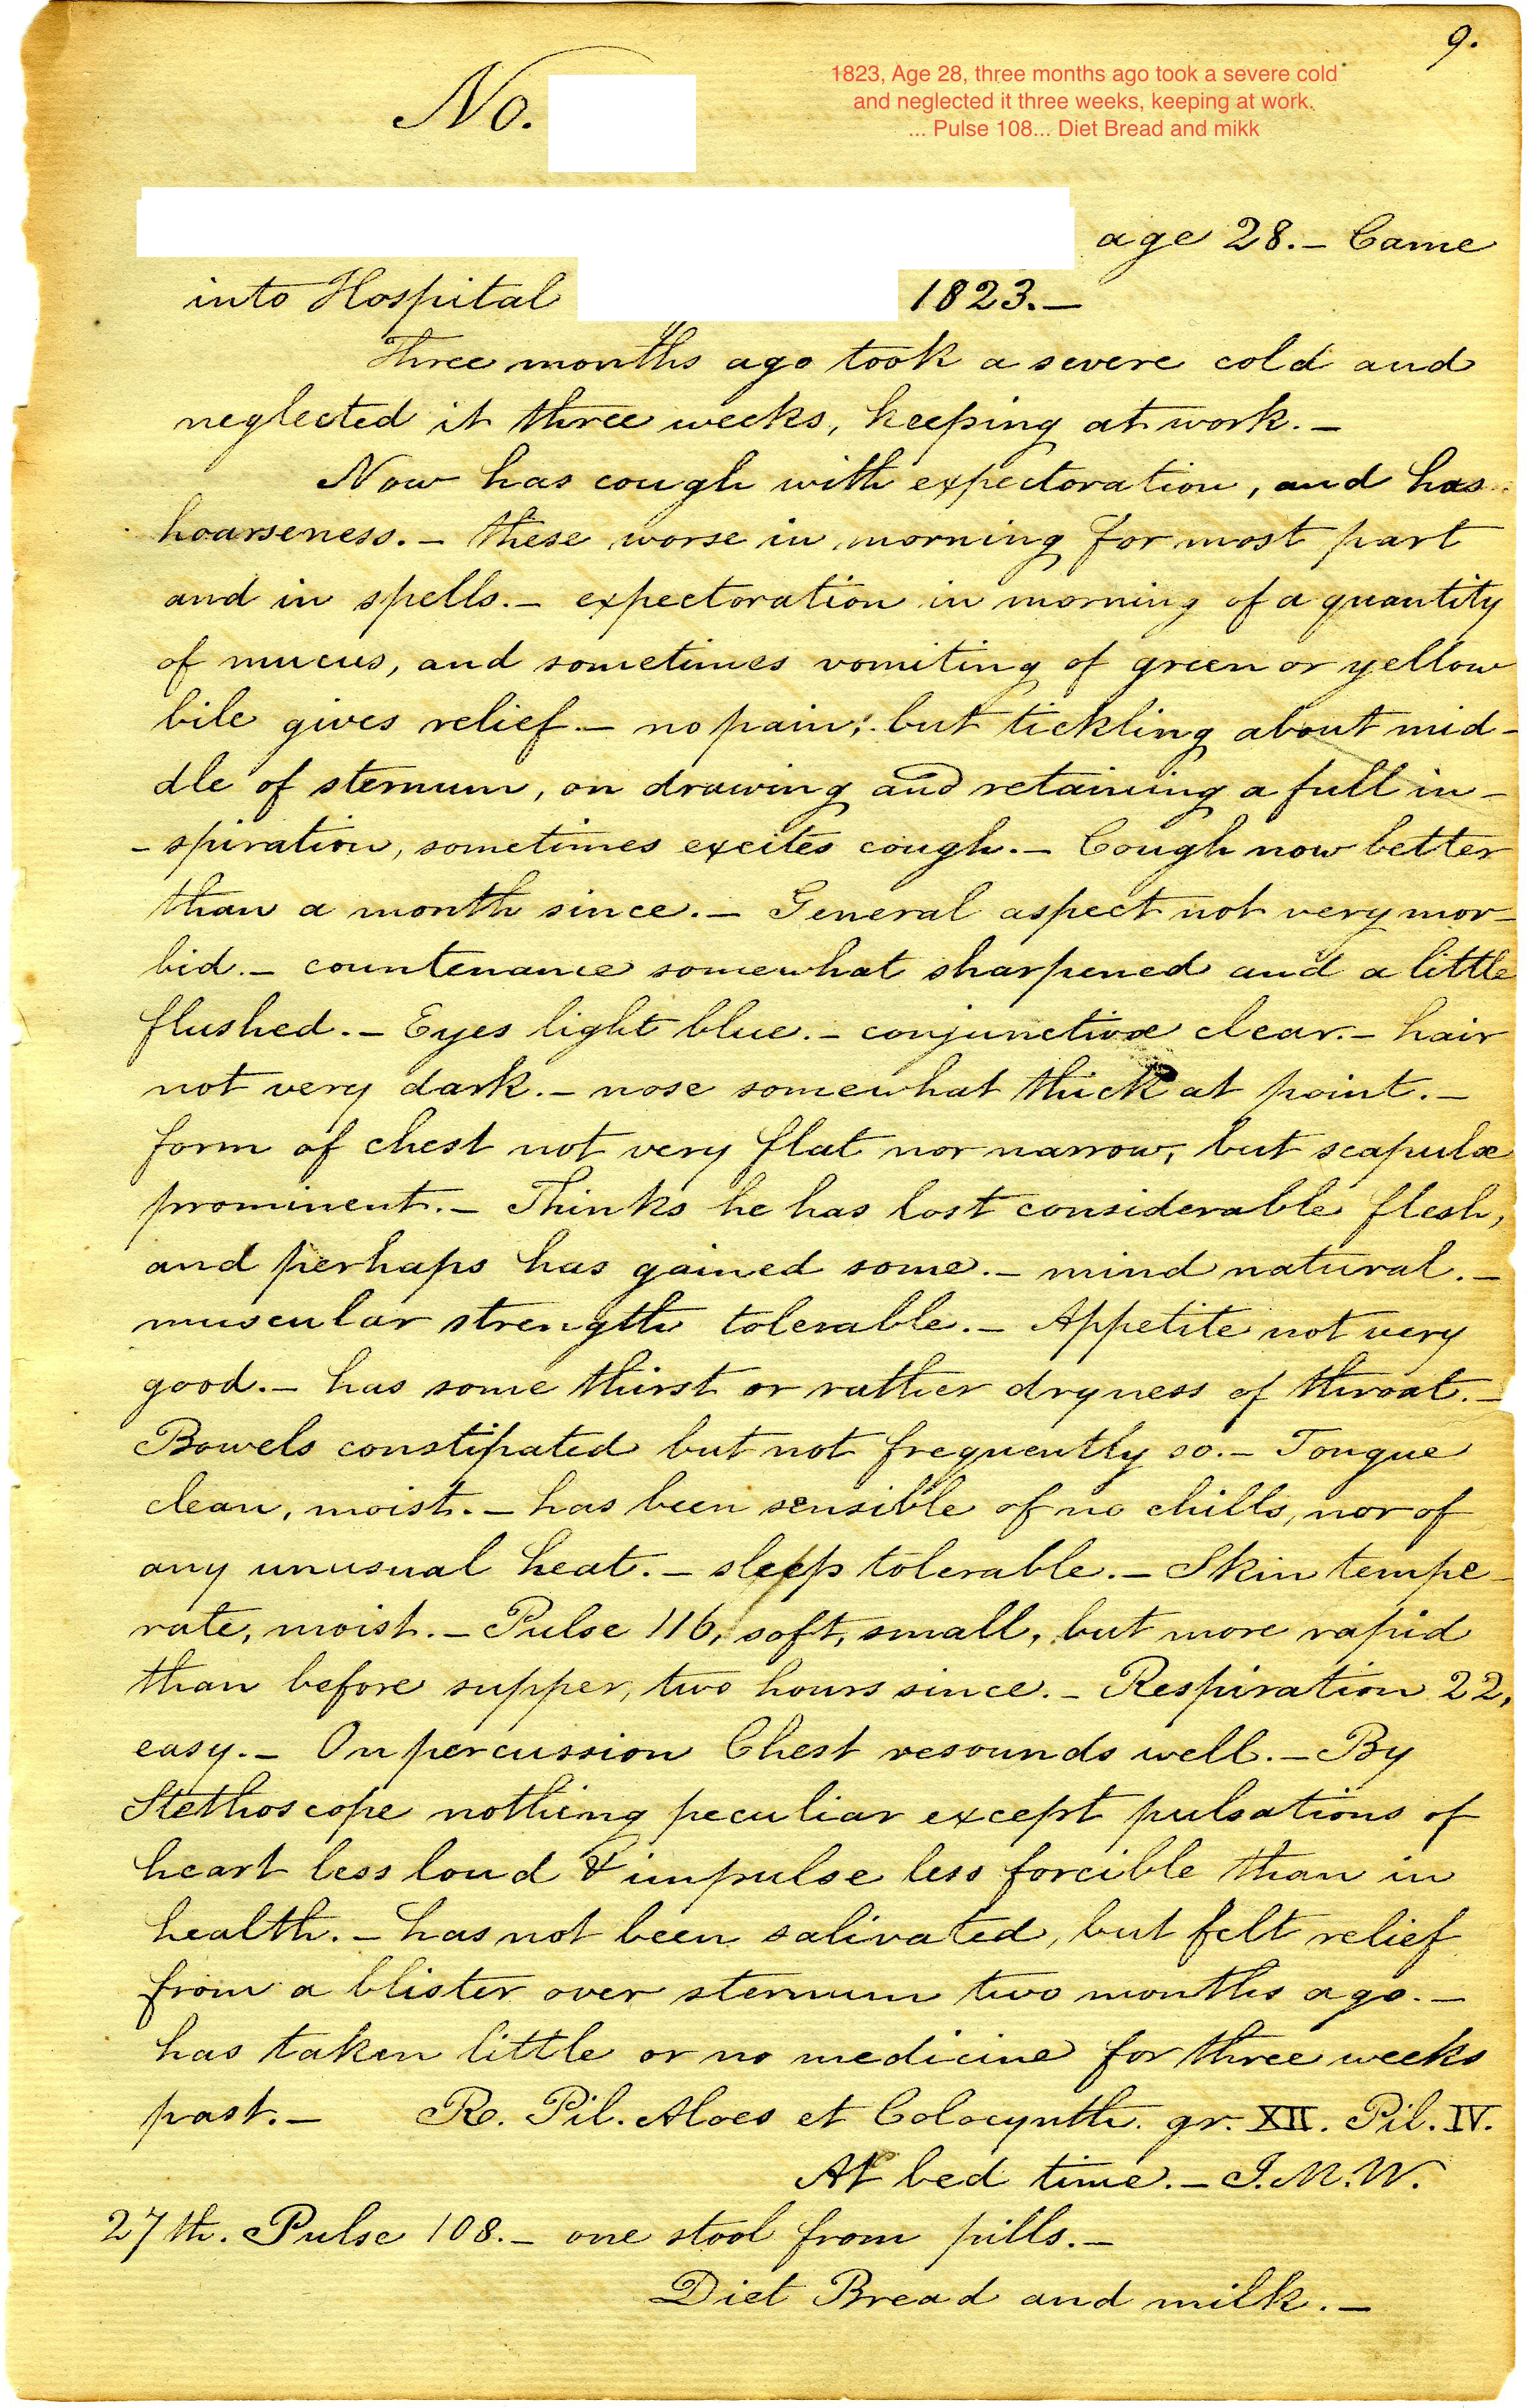 9.
No.
1823, Age 28, three months ago took a severe cold
and neglected it three weeks, keeping at work.
... Pulse 108... Diet Bread and mikk
age 28. - Came
into Hospital 1823. -
Three months ago took a severe cold and
neglected it three weeks, keeping at work. -
Now has cough with expectoration, and has
hoarseness. - these worse in morning for most part
and in spells. - expectoration in morning of a quantity
of mucus, and sometimes vomiting of green or yellow
bile gives relief. - no pain; but tickling about mid-
dle of sternum, on drawing and retaining a full in-
-spiration, sometimes excites cough. - Cough now better
than a month since. - General aspect not very mor-
bid. - countenance somewhat sharpened and a little
flushed. - Eyes light blue. - conjunctivæ clear. - hair
not very dark. - nose somewhat thick at point. -
form of chest not very flat nor narrow, but scapulæ
prominent. - Thinks he has lost considerable flesh,
and perhaps has gained some. - mind natural. -
muscular strength tolerable. - Appetite not very
good. - has some thirst or rather dryness of throat. -
Bowels constipated but not frequently so. - Tongue
clean, moist. - has been sensible of no chills, nor of
any unusual heat. - sleep tolerable. - Skin tempe-
rate, moist. - Pulse 116, soft, small, but more rapid
than before supper, two hours since. - Respiration 22,
easy. - On percussion Chest resounds well. - By
Stethoscope nothing peculiar except pulsations of
heart less loud & impulse less forcible than in
health. - has not been salivated, but felt relief
from a blister over sternum two months ago. -
has taken little or no medicine for three weeks
past. - Rx. Pil. Aloes et Colocynth. gr. XII. Pil. IV.
At bed time. - J.M.W.
27th. Pulse 108. - one stool from pills. -
Diet Bread and milk. -